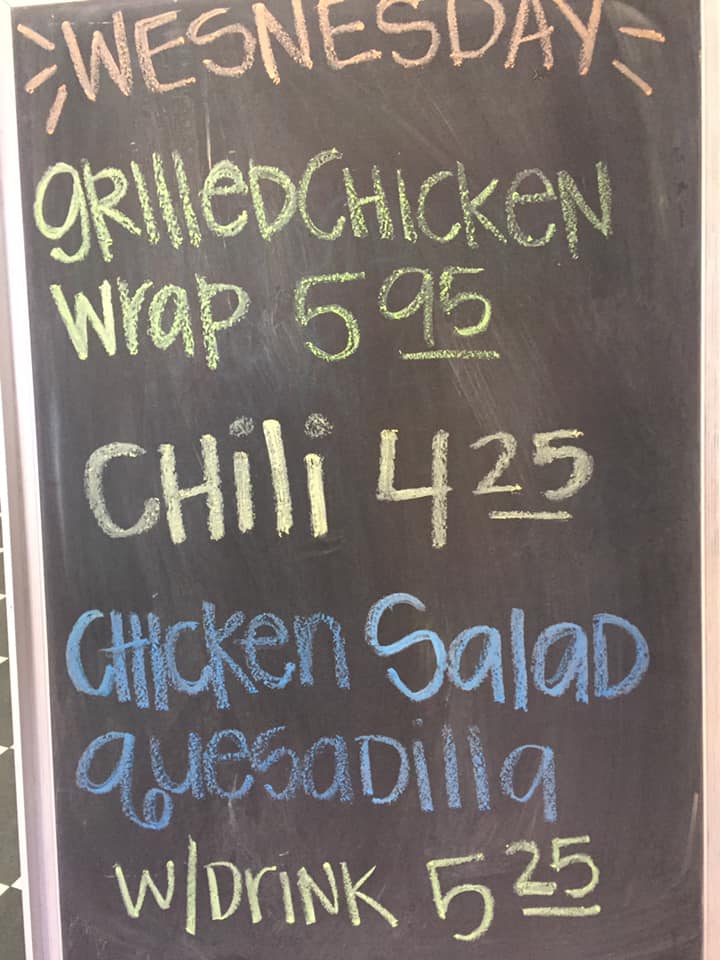 WESNESDAY
gRIlleDCHICKeN
wrap 5 95
CHili 4 25
CHICKen SalaD
quesaDilla
w/DrINK 5 25